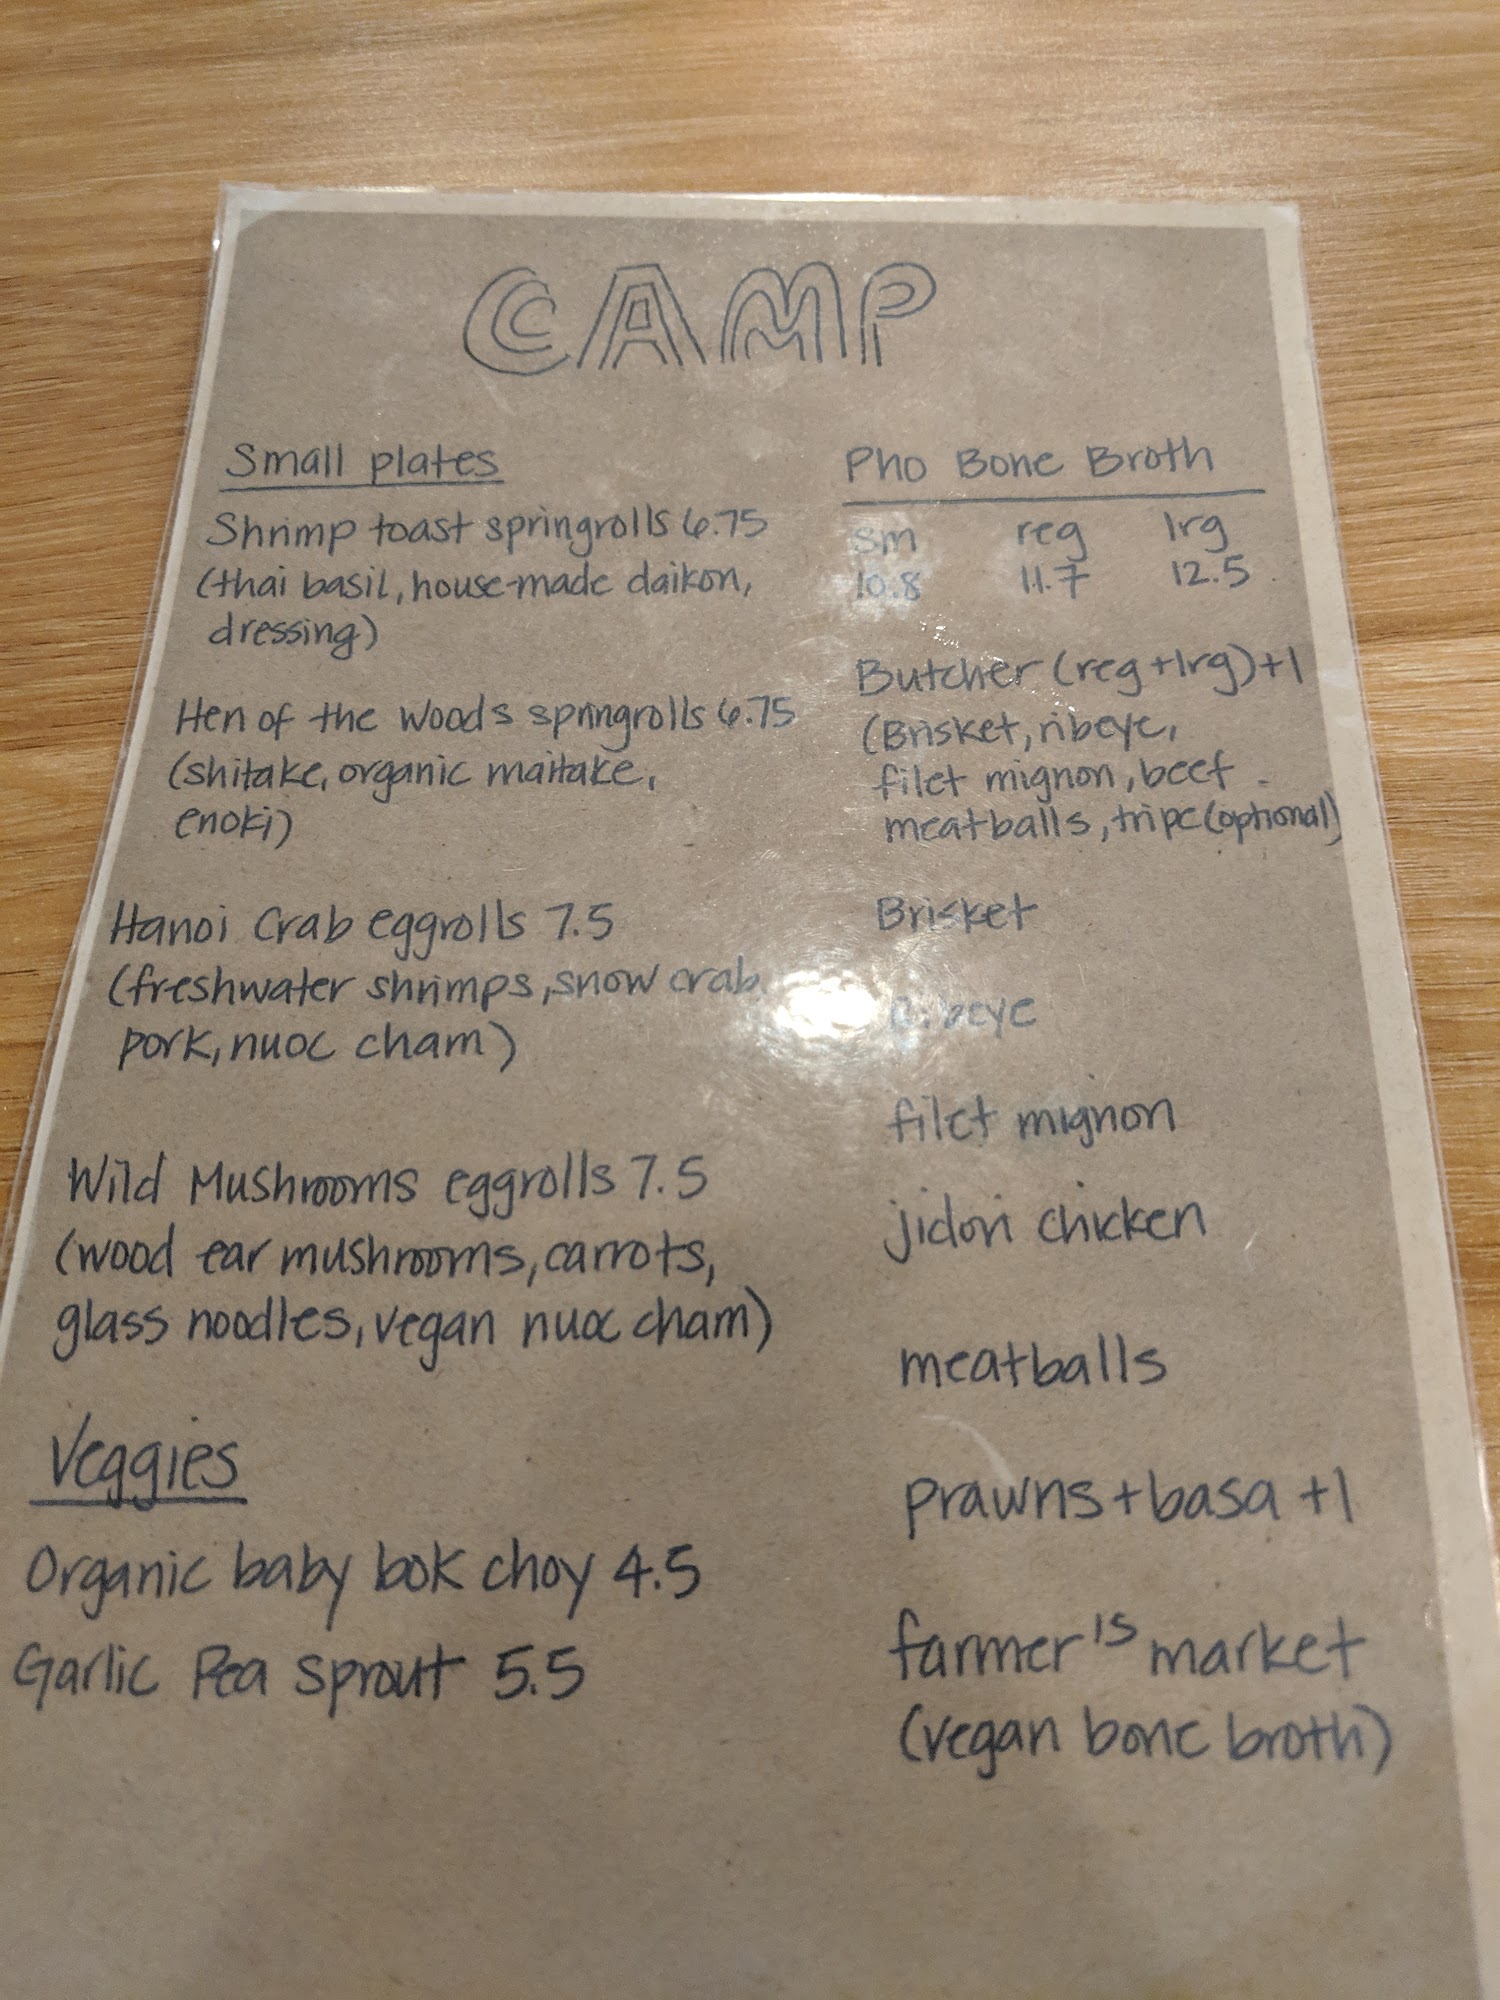 CAMP
Small plates
Shrimp toast springrolls 6.75
(thai basil, house-made daikon,
dressing)
Hen of the Woods springrolls 6.75
(shitake, organic maitake,
enoki)
Hanoi Crab eggrolls 7.5
(freshwater shrimps, snow crab
pork, nuoc cham)
Wild Mushrooms eggrolls 7.5
(wood ear mushrooms, carrots,
glass noodles, vegan nuoc cham)
Veggies
Organic baby bok choy 4.5
Garlic Pea sprout 5.5
Pho Bone Broth
sm reg lrg
10.8 11.7 12.5
Butcher (reg + lrg) +1
(Brisket, ribeye,
filet mignon, beef
meatballs, tripe (optional)
Brisket
filet mignon
jidori chicken
meatballs
prawns + basa +1
farmer's market
(vegan bone broth)